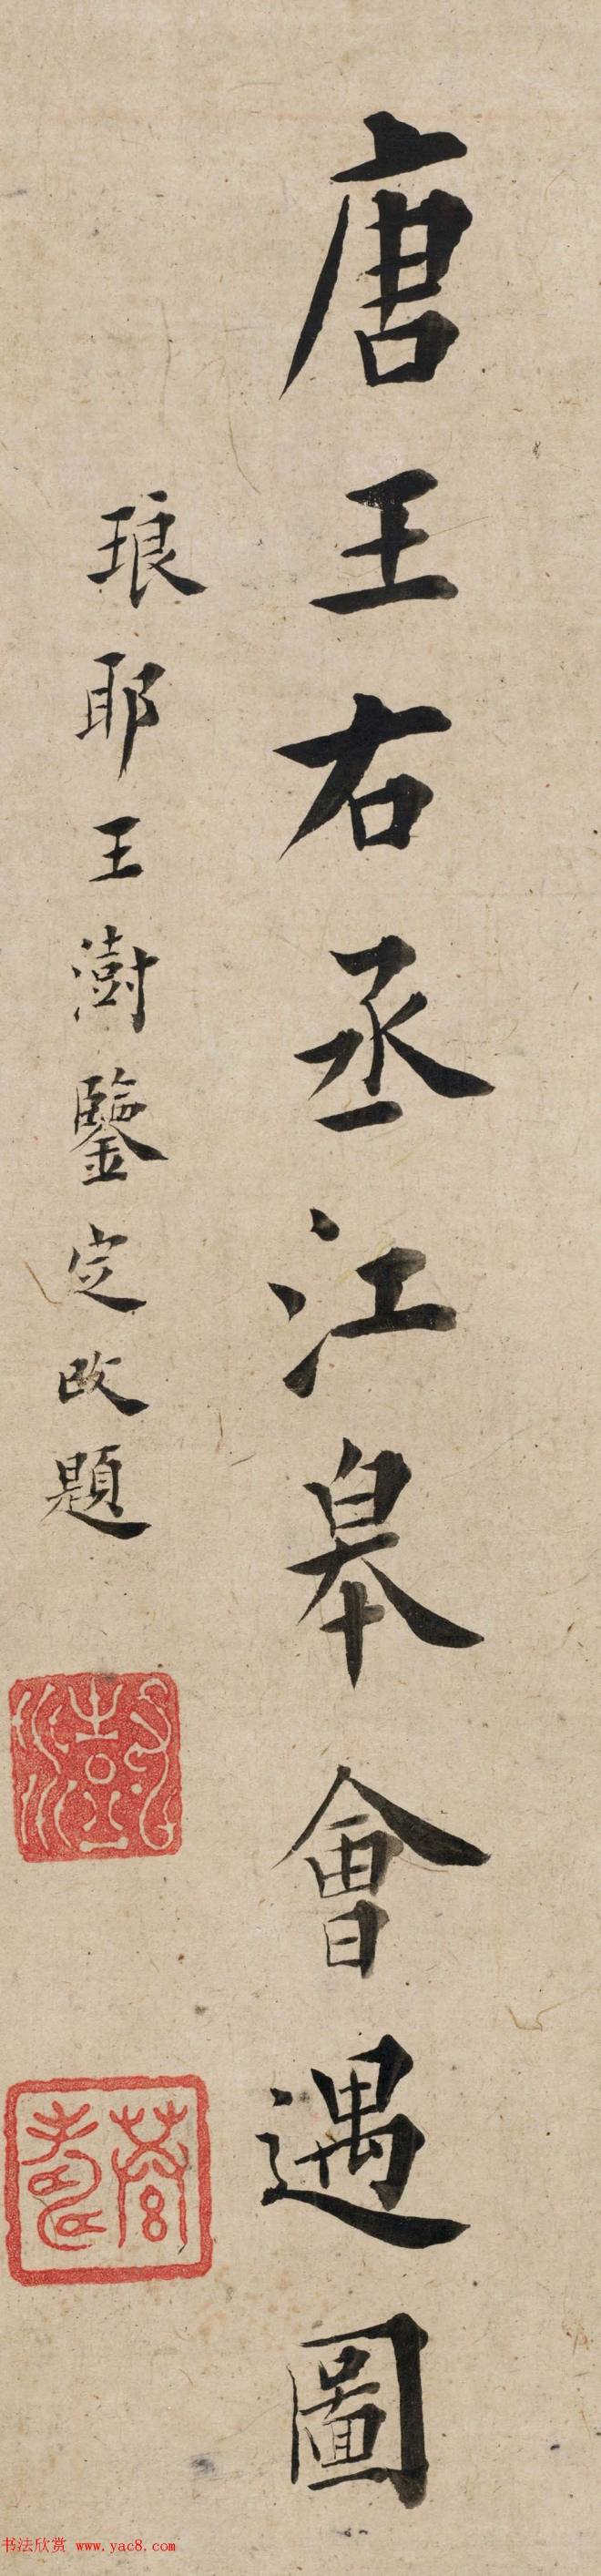 唐王右丞江皋會遇圖
琅耶王澍鑒定改題
书法欣赏 www.yac8.com